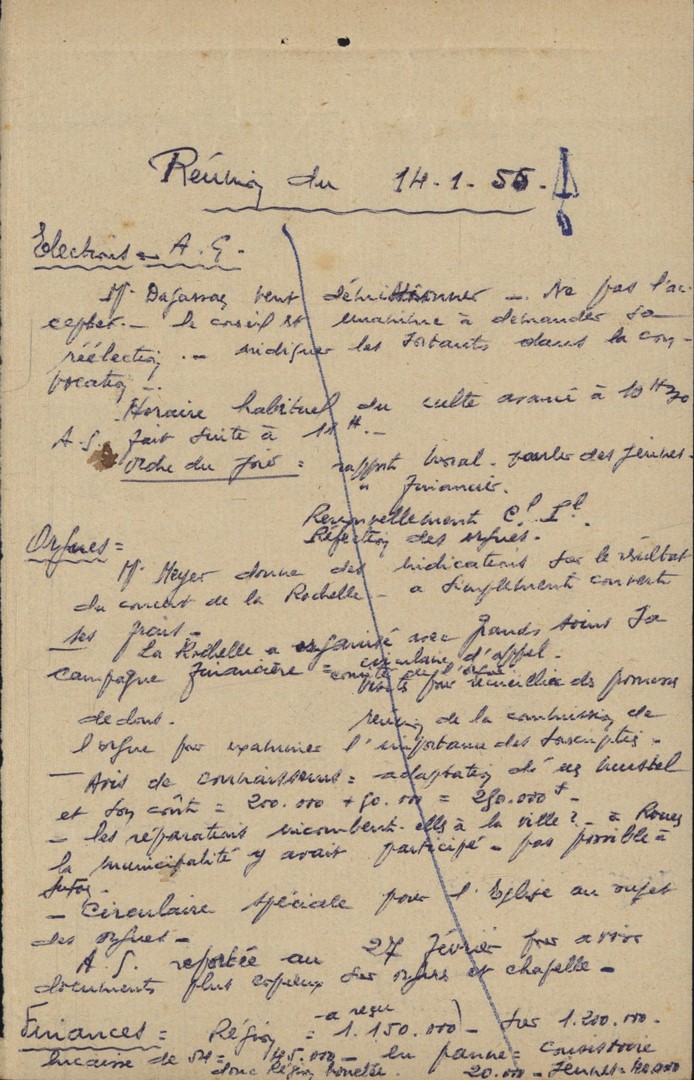 Réunion du 14.1.55.
Elections = A.G.
Mr veut démissionner — Ne pas l'ac-
cepter. — le conseil est unanime à demander sa
réélection. — indiquer les sortants dans la con-
vocation —.
Horaire habituel du culte avancé à 10 H 30
A.G. fait suite à 11 H. —
ordre du jour = rapport moral. parler des jeunes.
" financier.
Renouvellement
Réfection des orgues.
Orgues =
Mr Meyer donne des indications sur le résultat
du concert de la Rochelle — a simplement couvert
ses frais —
La Rochelle a organisé avec grands soins sa
campagne financière = circulaire d'appel.
comité de l'orgue
visites pour recueillir des promesses
de dons. réunion de la commission de
l'orgue pour examiner l'importance des souscriptions —
— Avis de connaisseurs = adaptation
et son coût = 200.000 + 50.000 = 250.000 f —
— les réparations incombent-elles à la ville ? — à
la municipalité y avait participé — pas possible à
— Circulaire spéciale pour l'Eglise au sujet
des orgues —
A.G. reportée au 27 février pour avoir
documents plus copieux sur orgues et chapelle —
Finances = Région = a reçu 1.150.000 — sur 1.200.000.
de 54 = 45.000 — en panne = consistoire
donc Région 20.000 — Jeunes =